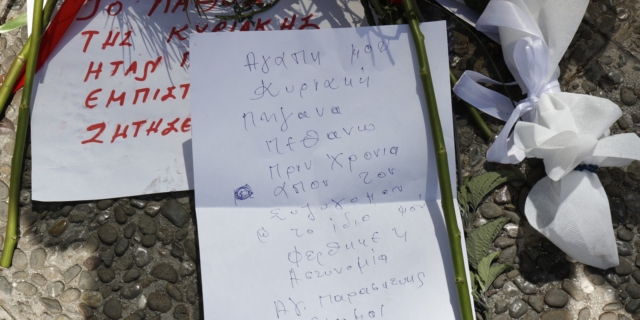 ΤΗΣ ΚΥΡΙΑΚΗΣ
ΗΤΑΝ
ΕΜΠΙΣΤ
ΖΗΤΗΣΕ
Αγάπη μου
Κυριακή
Πήγαινα
Πεθάνω
Πριν χρονια
απου τον
Συζυγο μου
το ιδιο μου
φερθηκε η
Αστυνομια
Αγ. Παρασκευης